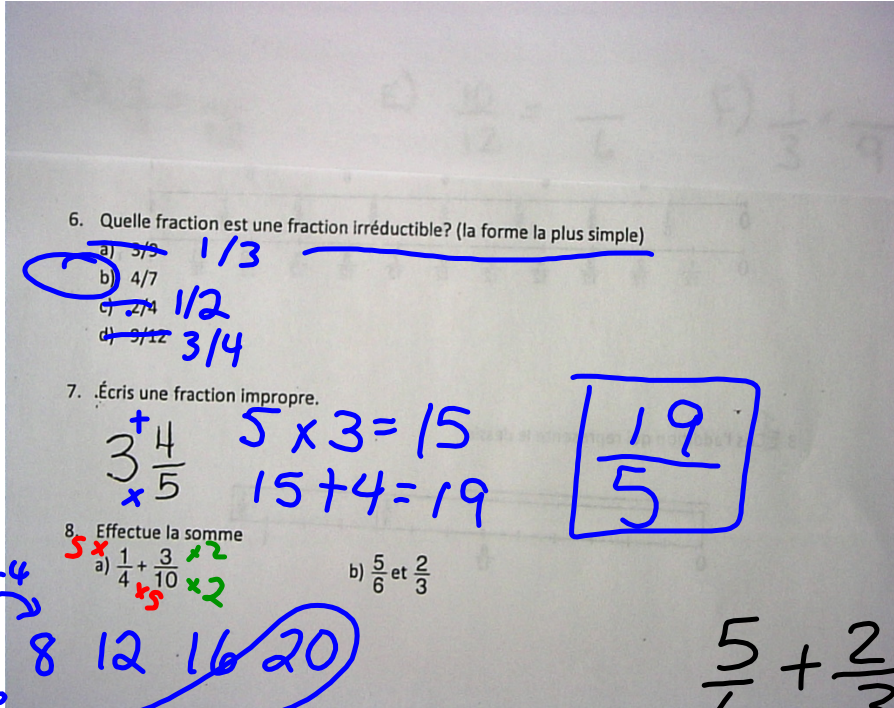 6. Quelle fraction est une fraction irréductible? (la forme la plus simple)
a) 3/9 1/3
b) 4/7
c) 2/4 1/2
d) 9/12 3/4
7. .Écris une fraction impropre.
3 4/5 + x
5 x 3 = 15
15 + 4 = 19
19/5
8. Effectue la somme
5x a) 1/4 + 3/10 x2 b) 5/6 et 2/3
x5 x2
8 12 16 20
5 + 2